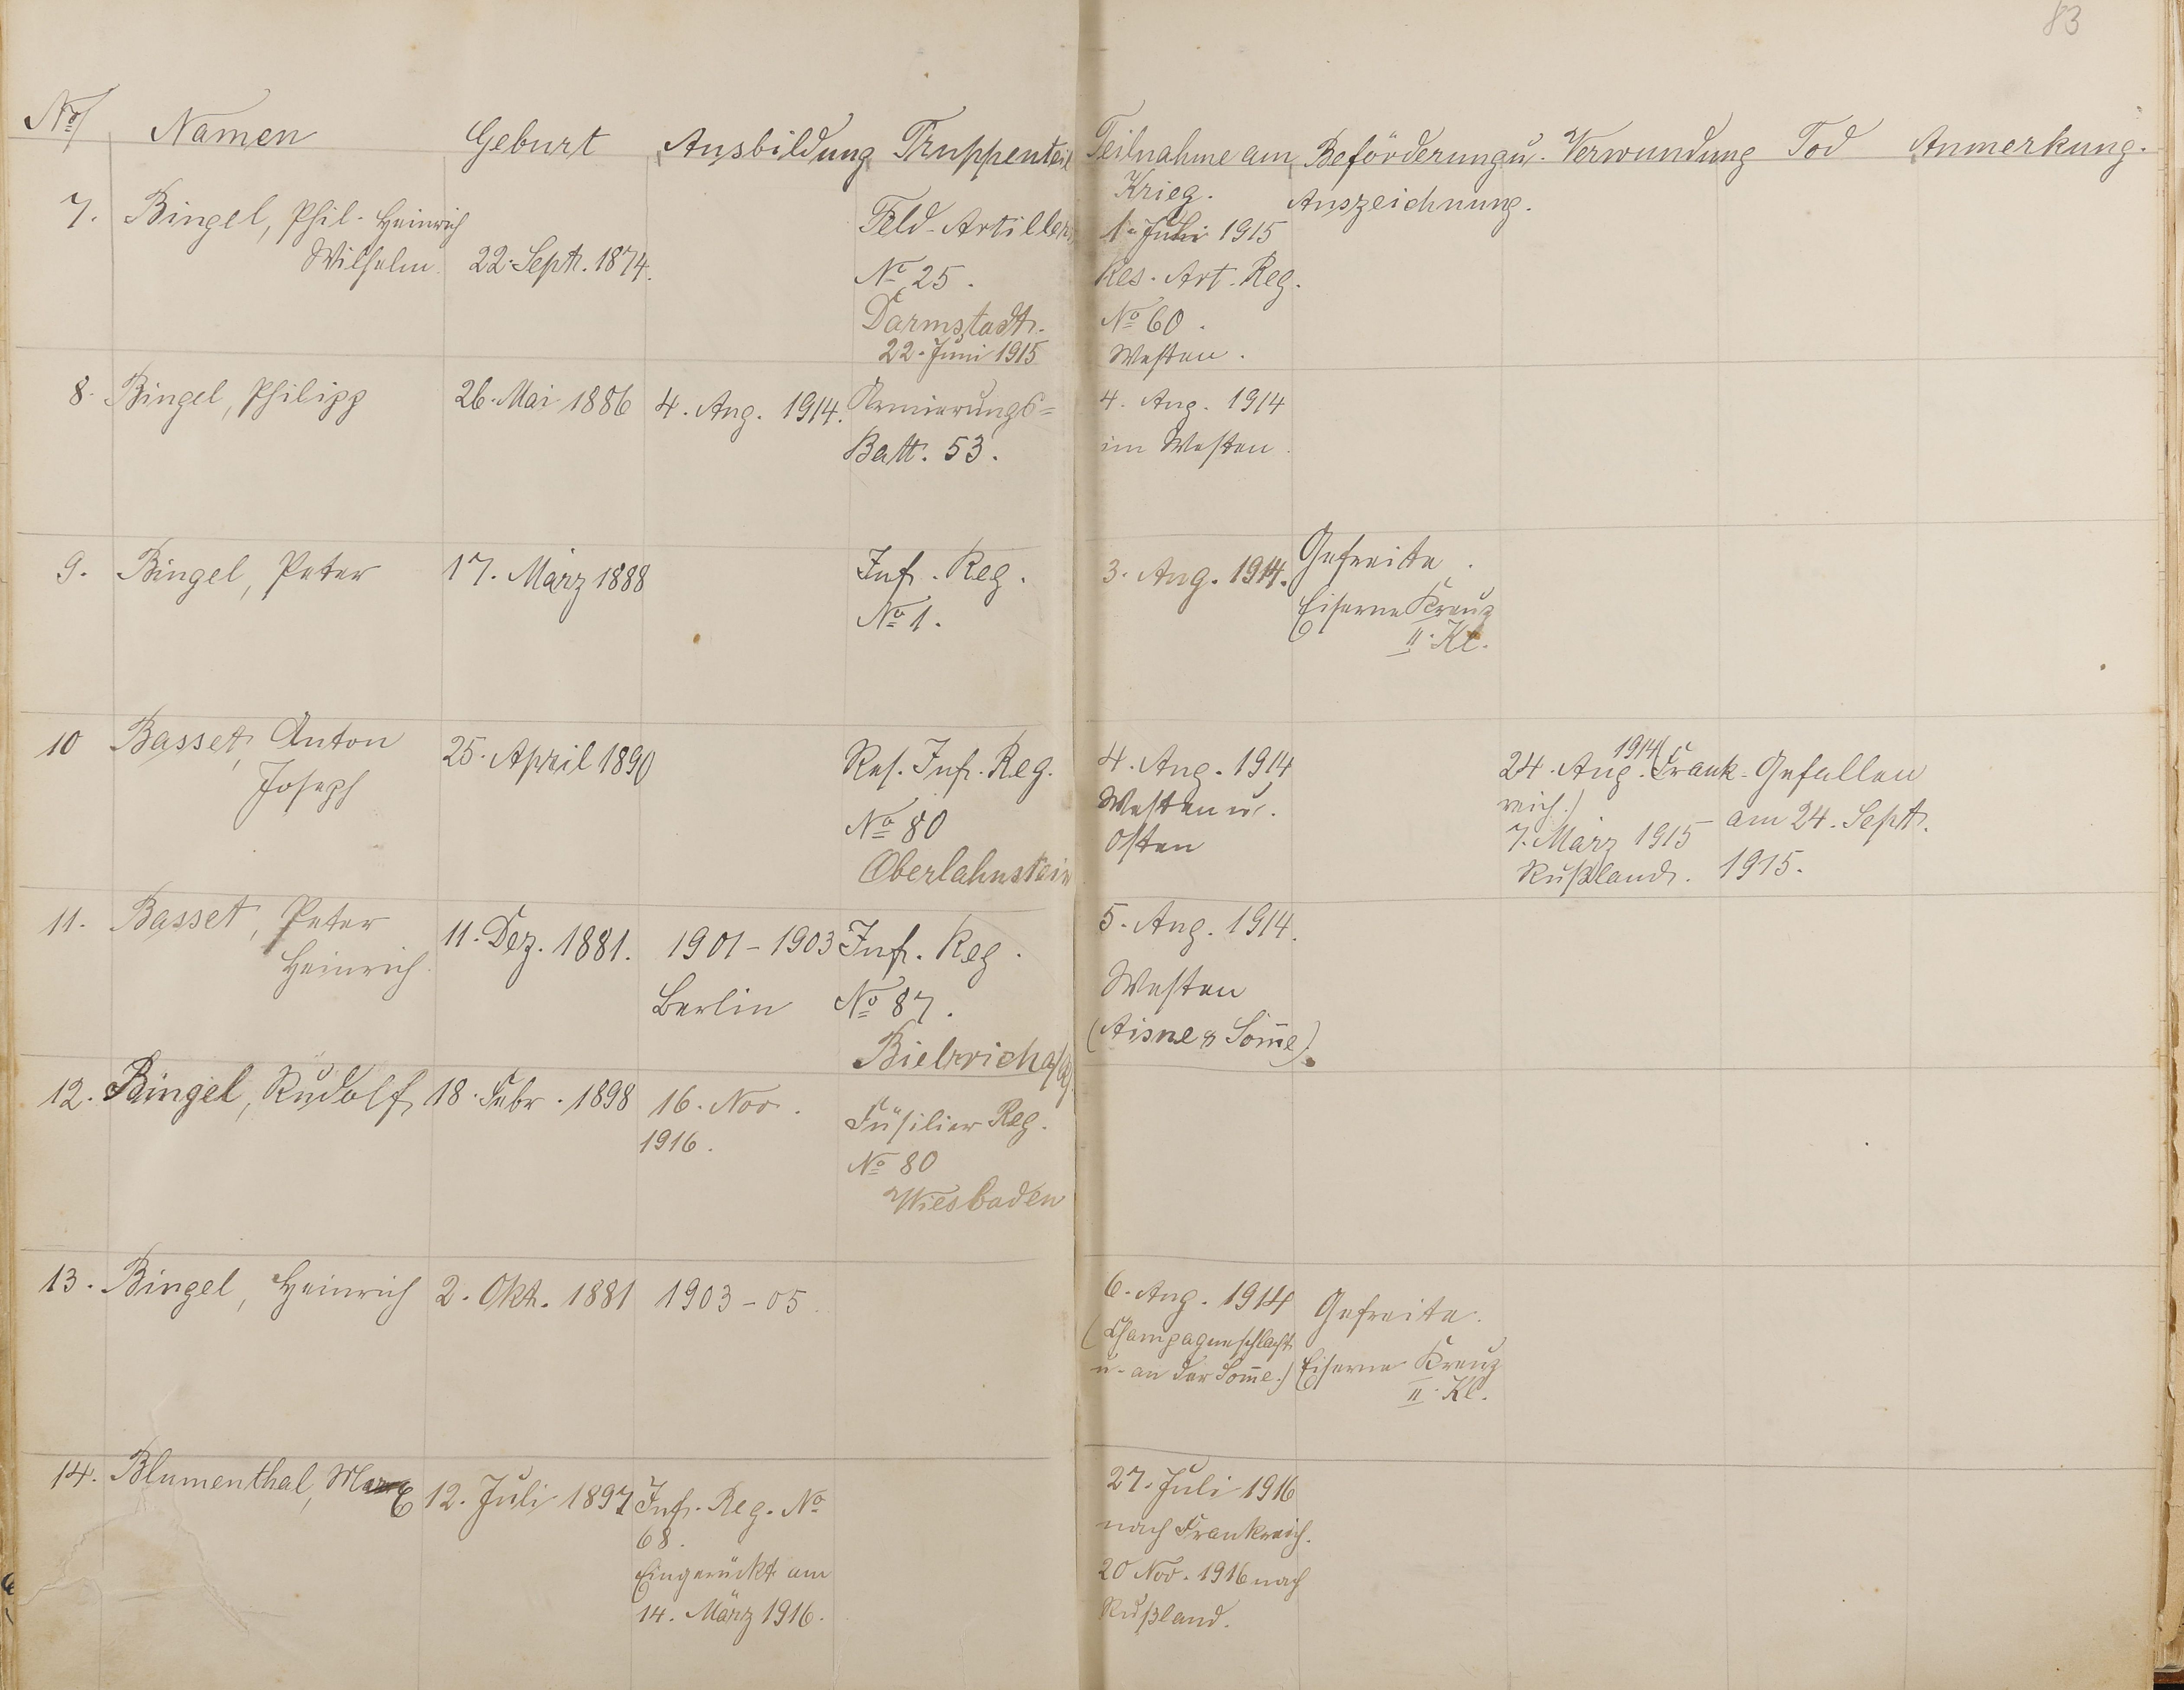 83
No Namen Geburt Ausbildung Truppenteil Teilnahme am Krieg. Beförderung u. Auszeichnung. Verwundung Tod Anmerkung.
7. Bingel, Phil. Heinrich
Wilhelm. 22. Sept. 1874.
Feld-Artillerie
No 25.
Darmstadt.
22. Juni 1915
1. Juli 1915
Res. Art. Reg.
No 60.
Westen.
8. Bingel, Philipp 26. Mai 1886 4. Aug. 1914. Armierungs-
Batt. 53.
4. Aug. 1914
im Westen.
9. Bingel, Peter 17. März 1888
Inf. Reg.
No 1.
3. Aug. 1914.
Gefreite.
Eiserne Kreuz
II. Kl.
10 Basset, Anton
Joseph
25. April 1890
Res. Inf. Reg.
No 80
Oberlahnstein
4. Aug. 1914
Westen u.
Osten
24. Aug. 1914 (Frank-
reich.)
7. März 1915
Rußland.
Gefallen
am 24. Sept.
1915.
11. Basset, Peter
Heinrich.
11. Dez. 1881.
1901-1903
Berlin
Inf. Reg.
No 87.
Biebrich a/Rh.
5. Aug. 1914.
Westen
(Aisne & Som̄e).
12. Bingel, Rudolf, 18. Febr. 1898
16. Nov.
1916.
Füsilier Reg.
No 80
Wiesbaden
13. Bingel, Heinrich 2. Okt. 1881 1903-05.
6. Aug. 1914
(Champagneschlacht
u. an der Som̄e.)
Gefreite.
Eiserne Kreuz
II. Kl.
14. Blumenthal, 12. Juli 1897
Inf. Reg. No
68.
Eingerückt am
14. März 1916.
27. Juli 1916
nach Frankreich.
20 Nov. 1916 nach
Rußland.